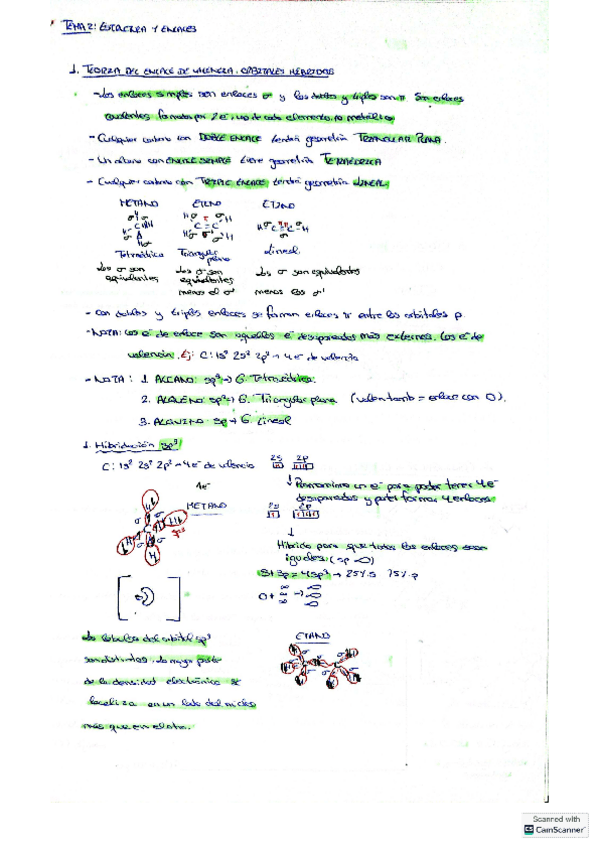 TEMA 2: ESTRUCTURA Y ENLACES
1. TEORÍA DEL ENLACE DE VALENCIA. ORBITALES HÍBRIDOS
- Los enlaces simples son enlaces σ y los dobles y triples son π. Son enlaces
covalentes formados por 2e⁻, uno de cada elemento no metálico
- Cualquier carbono con DOBLE ENLACE tendrá geometría TRIANGULAR PLANA.
- Un carbono con ENLACE SIMPLE tiene geometría TETRAÉDRICA
- Cualquier carbono con TRIPLE ENLACE tendrá geometría LINEAL.
METANO ETENO ETINO
Tetraédrica Triangular plana Lineal
Los σ son equivalentes
Los σ son equivalentes menos el σ'
Los σ son equivalentes menos los σ'
- Con dobles y triples enlaces se forman enlaces π entre los orbitales p.
- NOTA: Los e⁻ de enlace son aquellos e⁻ desapareados más externos. Los e⁻ de
valencia. Ej: C: 1s² 2s² 2p² → 4e⁻ de valencia
- NOTA: 1. ALCANO: sp³ → G. Tetraédrica.
2. ALQUENO: sp² → G. Triangular plana (valen tamb = enlace con O).
3. ALQUINO: sp → G. Lineal
1. Hibridación sp³
C: 1s² 2s² 2p² → 4e⁻ de valencia 2s 2p
4e⁻
↓ Promociono un e⁻ para poder tener 4e⁻
desapareados y poder formar 4 enlaces
METANO 2s 2p
↓
Híbrido para que todos los enlaces sean
iguales. (sp³)
S+3p = 4sp³ → 25% s 75% p
Los lóbulos del orbital sp³
son distintos. La mayor parte
de la densidad electrónica se
localiza en un lado del núcleo
más que en el otro.
ETANO
Scanned with
CamScanner